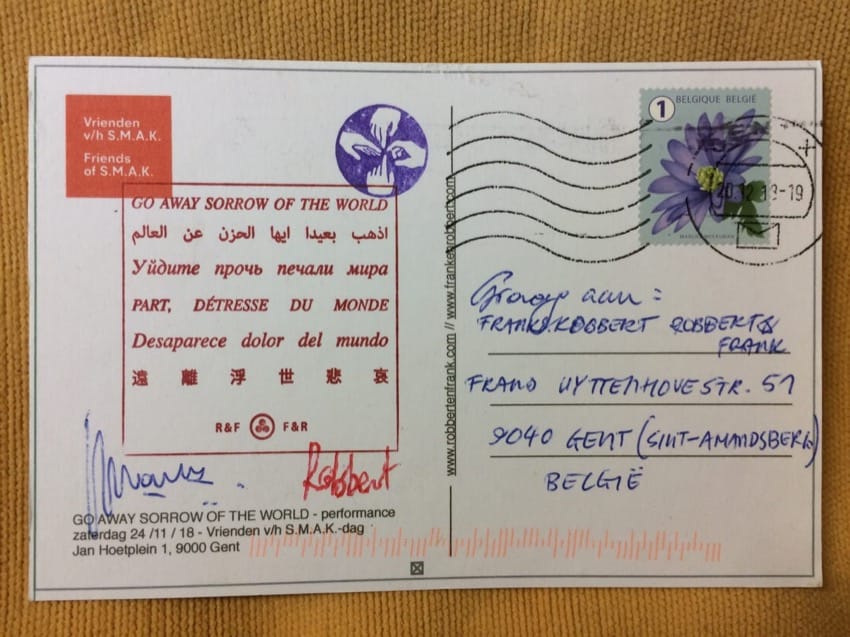 Vrienden
v/h S.M.A.K.
Friends
of S.M.A.K.
GO AWAY SORROW OF THE WORLD
اذهب بعيدا ايها الحزن عن العالم
Уйдите прочь печали мира
PART, DÉTRESSE DU MONDE
Desaparece dolor del mundo
遠離浮世悲哀
R&F F&R
Robbert
GO AWAY SORROW OF THE WORLD - performance
zaterdag 24 /11 / 18 - Vrienden v/h S.M.A.K.-dag
Jan Hoetplein 1, 9000 Gent
www.robbertenfrank.com // www.frankenrobbert.com
1 BELGIQUE BELGIË
Graag aan :
FRANK & ROBBERT ROBBERT &
FRANK
FRANS UYTTENHOVESTR. 51
9040 GENT (SINT-AMANDSBERG)
BELGIË